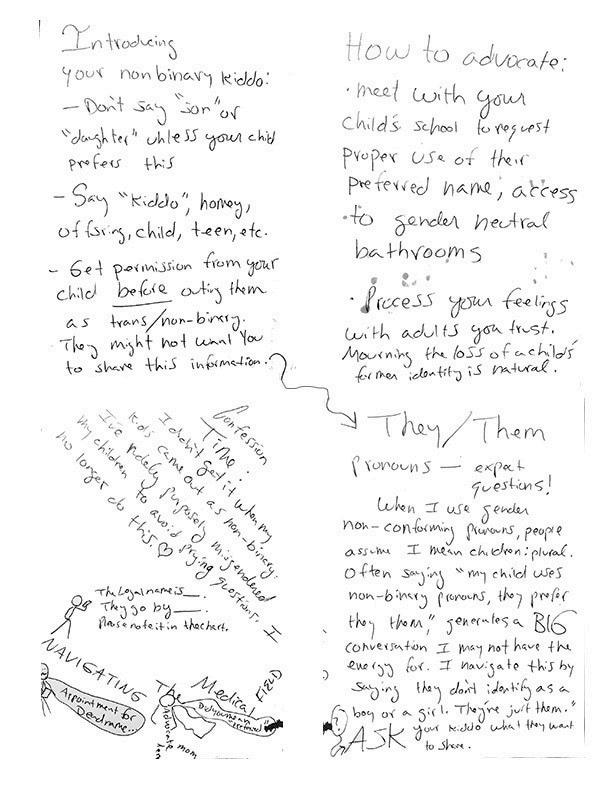 Introducing
your nonbinary kiddo:
- Don't say "son" or
"daughter" unless your child
prefers this
- Say "Kiddo", homey,
offsring, child, teen, etc.
- Get permission from your
child before outing them
as trans/non-binary.
They might not want you
to share this information.
How to advocate:
• meet with your
child's school to request
proper use of their
preferred name, access
to gender neutral
bathrooms
• Process your feelings
with adults you trust.
Mourning the loss of a child's
former identity is natural.
Confession
Time:
I didn't get it when my
kids came out as non-binary.
I've purposely misgendered
my children to avoid prying questions. I
no longer do this. ♡
The Legal name is __.
They go by __.
Please note it in the chart.
NAVIGATING
The Medical
FIELD
Appointment for
Deadname...
Did you mean
mom
They/Them
pronouns — expect
questions!
When I use gender
non-conforming pronouns, people
assume I mean children: plural.
Often saying "my child uses
non-binary pronouns, they prefer
they them," generates a BIG
conversation I may not have the
energy for. I navigate this by
saying they don't identify as a
boy or a girl. They're just them."
ASK your kiddo what they want
to share.